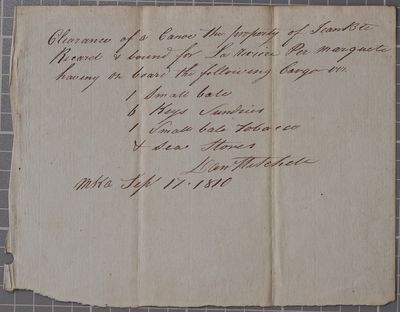 Clearance of a Canoe the property of Jean Bte
Ricard & bound for La Riviere Per marquete
having on board the following Cargo viz.
1 Small bale
6 Kegs Sundries
1 Small bale Tobacco
& Sea Stores
Mitchell
Mka Sept 17. 1810